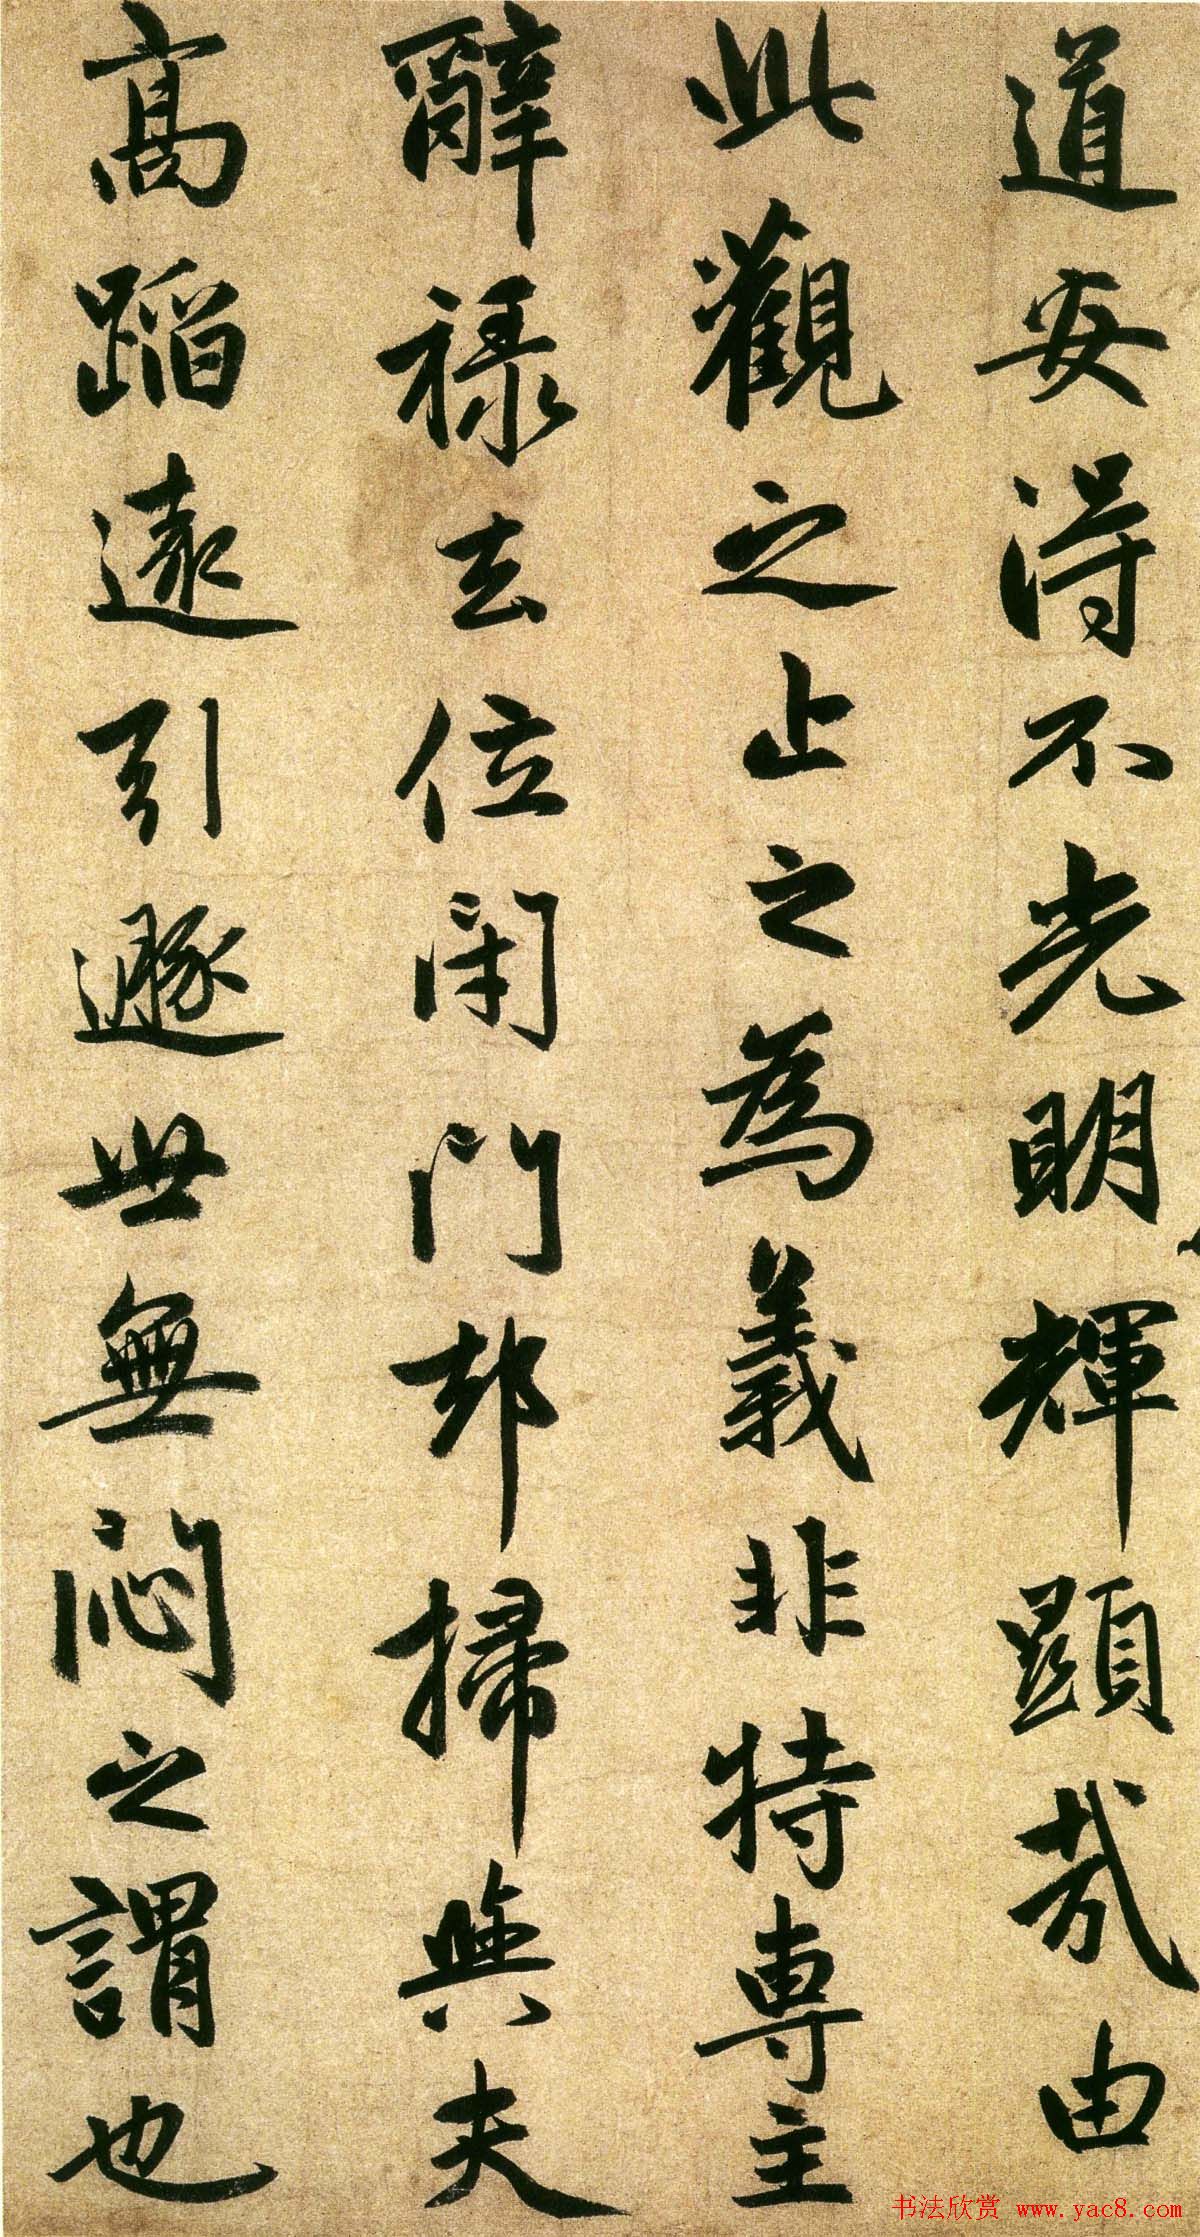 道安得不光明輝顯哉由
此觀之止之為義非特專主
辭祿去位閉門却掃與夫
高蹈遠引遯世無悶之謂也
书法欣赏 www.yac8.com